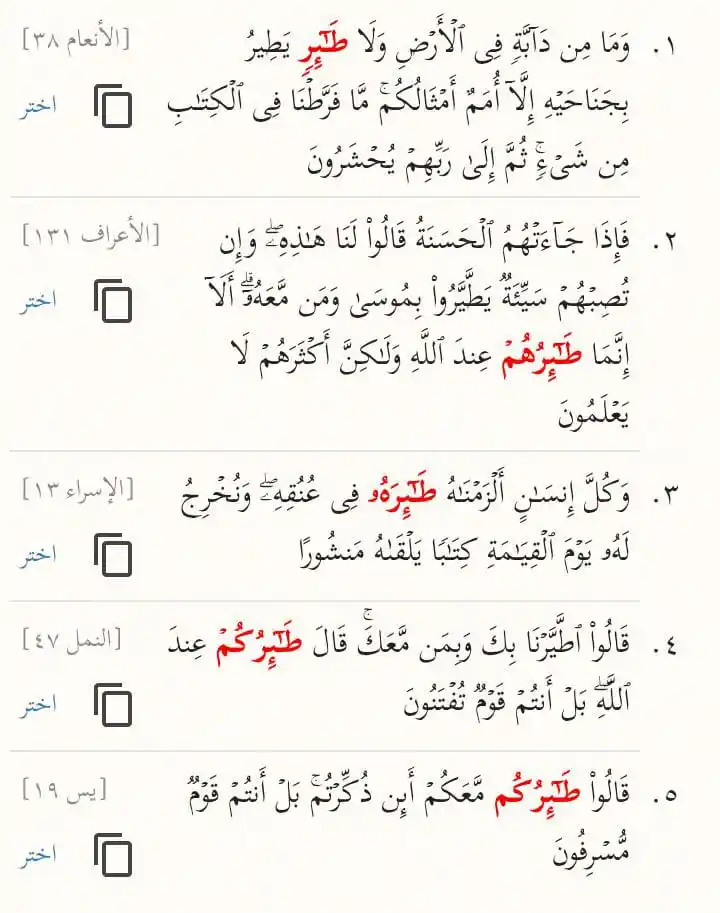 ١. وَمَا مِن دَآبَّةٖ فِي ٱلۡأَرۡضِ وَلَا طَٰٓئِرٖ يَطِيرُ [الأنعام ٣٨]
بِجَنَاحَيۡهِ إِلَّآ أُمَمٌ أَمۡثَالُكُمۚ مَّا فَرَّطۡنَا فِي ٱلۡكِتَٰبِ اختر
مِن شَيۡءٖۚ ثُمَّ إِلَىٰ رَبِّهِمۡ يُحۡشَرُونَ
٢. فَإِذَا جَآءَتۡهُمُ ٱلۡحَسَنَةُ قَالُواْ لَنَا هَٰذِهِۦۖ وَإِن [الأعراف ١٣١]
تُصِبۡهُمۡ سَيِّئَةٞ يَطَّيَّرُواْ بِمُوسَىٰ وَمَن مَّعَهُۥٓۗ أَلَآ اختر
إِنَّمَا طَٰٓئِرُهُمۡ عِندَ ٱللَّهِ وَلَٰكِنَّ أَكۡثَرَهُمۡ لَا
يَعۡلَمُونَ
٣. وَكُلَّ إِنسَٰنٍ أَلۡزَمۡنَٰهُ طَٰٓئِرَهُۥ فِي عُنُقِهِۦۖ وَنُخۡرِجُ [الإسراء ١٣]
لَهُۥ يَوۡمَ ٱلۡقِيَٰمَةِ كِتَٰبٗا يَلۡقَىٰهُ مَنشُورًا اختر
٤. قَالُواْ ٱطَّيَّرۡنَا بِكَ وَبِمَن مَّعَكَۚ قَالَ طَٰٓئِرُكُمۡ عِندَ [النمل ٤٧]
ٱللَّهِۖ بَلۡ أَنتُمۡ قَوۡمٞ تُفۡتَنُونَ اختر
٥. قَالُواْ طَٰٓئِرُكُم مَّعَكُمۡ أَئِن ذُكِّرۡتُمۚ بَلۡ أَنتُمۡ قَوۡمٞ [يس ١٩]
مُّسۡرِفُونَ اختر